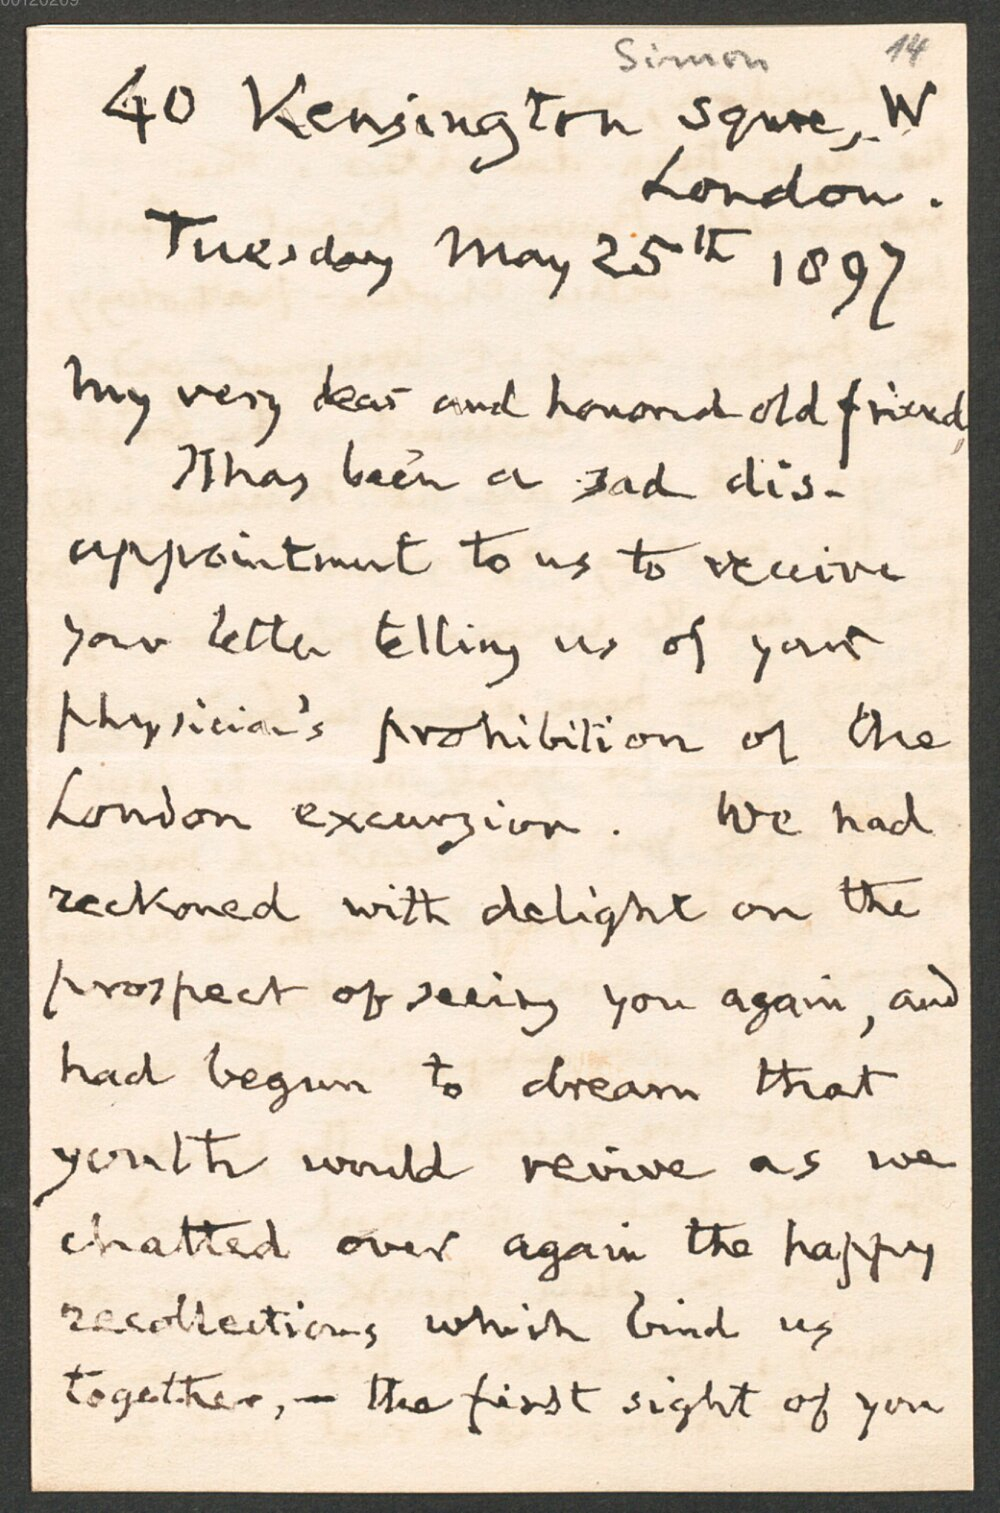 00126209
Simon 14
40 Kensington Square, W
London.
Tuesday May 25th 1897
My very dear and honored old friend,
It has been a sad dis-
appointment to us to receive
your letter telling us of your
physician's prohibition of the
London excursion. We had
reckoned with delight on the
prospect of seeing you again, and
had begun to dream that
youth would revive as we
chatted over again the happy
recollections which bind us
together, — the first sight of you